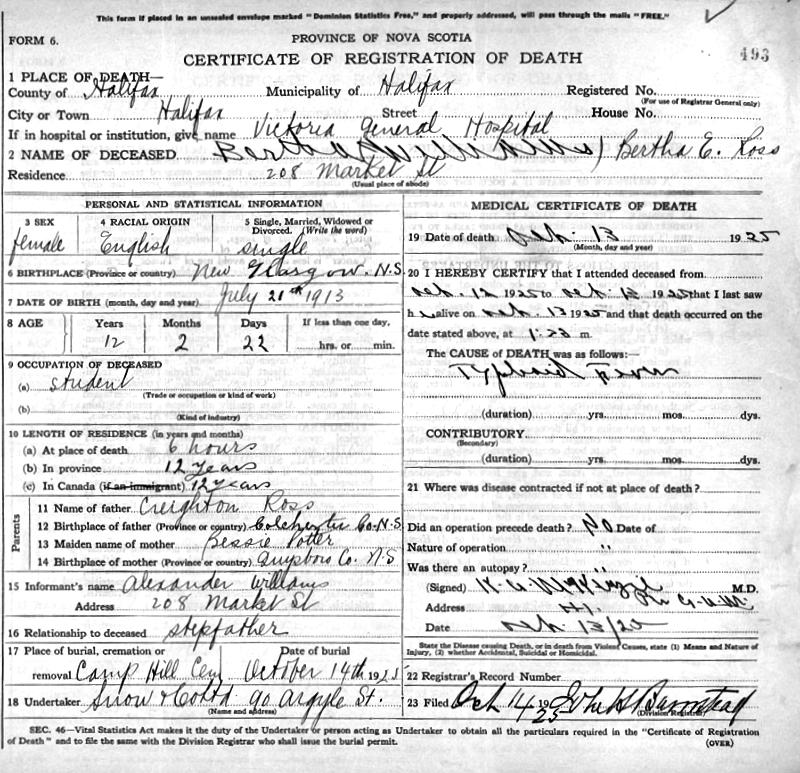 This form if placed in an unsealed envelope marked "Dominion Statistics Free," and properly addressed, will pass through the mails "FREE."
FORM 6.
PROVINCE OF NOVA SCOTIA
493
CERTIFICATE OF REGISTRATION OF DEATH
1 PLACE OF DEATH—
County of Halifax Municipality of Halifax Registered No.
(For use of Registrar General only)
City or Town Halifax Street House No.
If in hospital or institution, give name Victoria General Hospital
2 NAME OF DECEASED Bertha Williams) Bertha E. Ross
Residence 208 Market St
(Usual place of abode)
PERSONAL AND STATISTICAL INFORMATION
3 SEX 4 RACIAL ORIGIN 5 Single, Married, Widowed or Divorced. (Write the word)
female English single
6 BIRTHPLACE (Province or country) New Glasgow. N.S.
7 DATE OF BIRTH (month, day and year) July 21st 1913
8 AGE Years Months Days If less than one day,
12 2 22 hrs. or min.
9 OCCUPATION OF DECEASED
(a) student
(Trade or occupation or kind of work)
(b)
(Kind of industry)
10 LENGTH OF RESIDENCE (in years and months)
(a) At place of death 6 hours
(b) In province 12 years
(c) In Canada (if an immigrant) 12 years
Parents
11 Name of father Creighton Ross
12 Birthplace of father (Province or country) Colchester Co. N.S.
13 Maiden name of mother Bessie Potter
14 Birthplace of mother (Province or country) Guysboro Co. N.S
15 Informant's name Alexander Williams
Address 208 Market St
16 Relationship to deceased stepfather
17 Place of burial, cremation or removal Date of burial
Camp Hill Cem October 14th 1925
18 Undertaker Snow & Co Ltd 90 Argyle St.
(Name and address)
MEDICAL CERTIFICATE OF DEATH
19 Date of death Oct. 13 1925
(Month, day and year)
20 I HEREBY CERTIFY that I attended deceased from
Oct. 12 1925 to Oct. 13 1925 that I last saw
h alive on Oct. 13 1925 and that death occurred on the
date stated above, at 1:23 m
The CAUSE of DEATH was as follows:—
Typhoid Fever
(duration) yrs. mos. dys.
CONTRIBUTORY
(Secondary)
(duration) yrs. mos. dys.
21 Where was disease contracted if not at place of death?
Did an operation precede death? No Date of
Nature of operation "
Was there an autopsy? "
(Signed) M.D.
Address
Date Oct. 13/25
State the Disease causing Death, or in death from Violent Causes, state (1) Means and Nature of
Injury, (2) whether Accidental, Suicidal or Homicidal.
22 Registrar's Record Number
23 Filed Oct 14 1925
(Division Registrar)
SEC. 46—Vital Statistics Act makes it the duty of the Undertaker or person acting as Undertaker to obtain all the particulars required in the "Certificate of Registration
of Death" and to file the same with the Division Registrar who shall issue the burial permit.
(OVER)